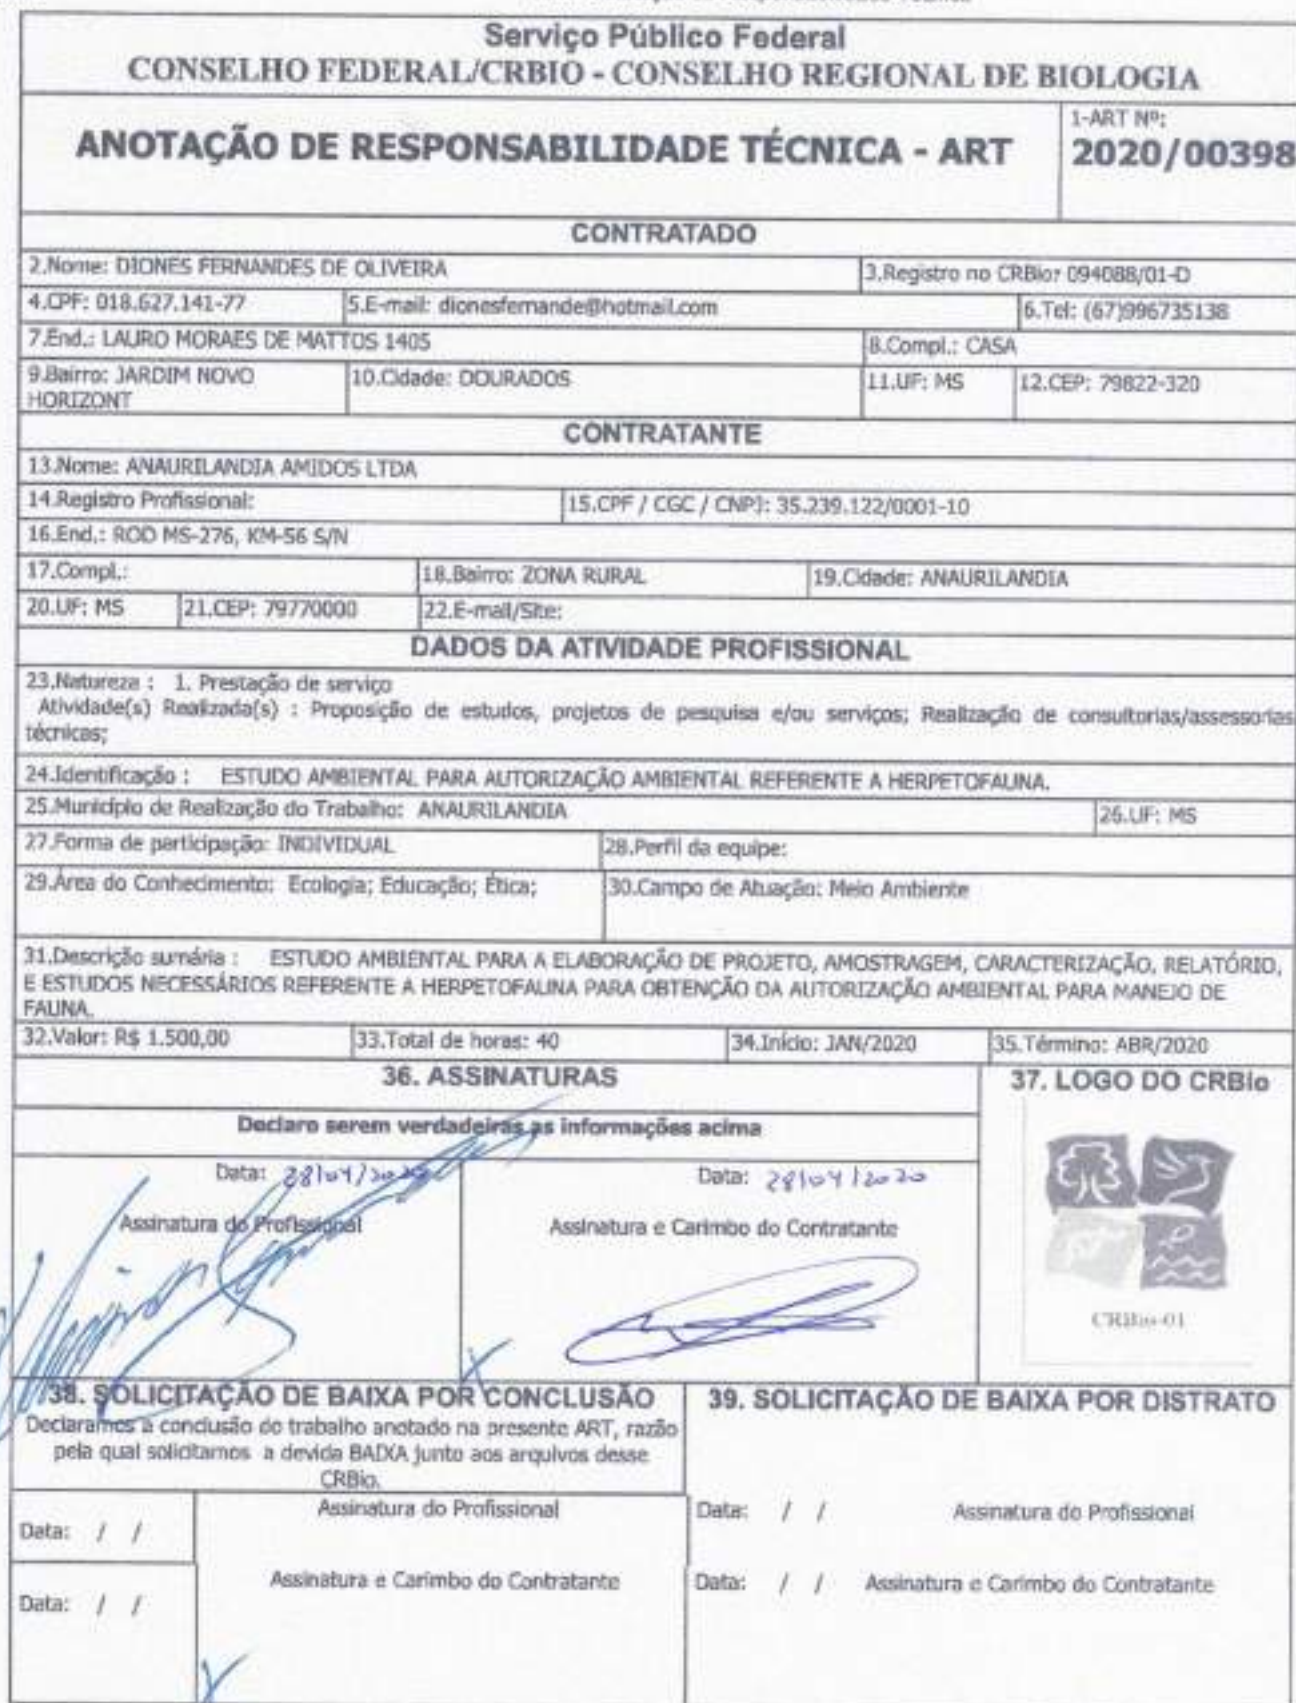 Serviço Público Federal
CONSELHO FEDERAL/CRBIO - CONSELHO REGIONAL DE BIOLOGIA
ANOTAÇÃO DE RESPONSABILIDADE TÉCNICA - ART
1-ART Nº:
2020/00398
CONTRATADO
2.Nome: DIONES FERNANDES DE OLIVEIRA
3.Registro no CRBio: 094088/01-D
4.CPF: 018.627.141-77
5.E-mail: dionesfernande@hotmail.com
6.Tel: (67)996735138
7.End.: LAURO MORAES DE MATTOS 1405
8.Compl.: CASA
9.Bairro: JARDIM NOVO
HORIZONT
10.Cidade: DOURADOS
11.UF: MS
12.CEP: 79822-320
CONTRATANTE
13.Nome: ANAURILANDIA AMIDOS LTDA
14.Registro Profissional:
15.CPF / CGC / CNPJ: 35.239.122/0001-10
16.End.: ROD MS-276, KM-56 S/N
17.Compl.:
18.Bairro: ZONA RURAL
19.Cidade: ANAURILANDIA
20.UF: MS
21.CEP: 79770000
22.E-mail/Site:
DADOS DA ATIVIDADE PROFISSIONAL
23.Natureza : 1. Prestação de serviço
Atividade(s) Realizada(s) : Proposição de estudos, projetos de pesquisa e/ou serviços; Realização de consultorias/assessorias
técnicas;
24.Identificação : ESTUDO AMBIENTAL PARA AUTORIZAÇÃO AMBIENTAL REFERENTE A HERPETOFAUNA.
25.Município de Realização do Trabalho: ANAURILANDIA
26.UF: MS
27.Forma de participação: INDIVIDUAL
28.Perfil da equipe:
29.Área do Conhecimento: Ecologia; Educação; Ética;
30.Campo de Atuação: Meio Ambiente
31.Descrição sumária : ESTUDO AMBIENTAL PARA A ELABORAÇÃO DE PROJETO, AMOSTRAGEM, CARACTERIZAÇÃO, RELATÓRIO,
E ESTUDOS NECESSÁRIOS REFERENTE A HERPETOFAUNA PARA OBTENÇÃO DA AUTORIZAÇÃO AMBIENTAL PARA MANEJO DE
FAUNA.
32.Valor: R$ 1.500,00
33.Total de horas: 40
34.Início: JAN/2020
35.Término: ABR/2020
36. ASSINATURAS
37. LOGO DO CRBio
Declaro serem verdadeiras as informações acima
Data: 28/04/2020
Data: 28/04/2020
Assinatura do Profissional
Assinatura e Carimbo do Contratante
CRBio-01
38. SOLICITAÇÃO DE BAIXA POR CONCLUSÃO
Declaramos a conclusão do trabalho anotado na presente ART, razão
pela qual solicitamos a devida BAIXA junto aos arquivos desse
CRBio.
39. SOLICITAÇÃO DE BAIXA POR DISTRATO
Data: / /
Assinatura do Profissional
Data: / /
Assinatura do Profissional
Data: / /
Assinatura e Carimbo do Contratante
Data: / /
Assinatura e Carimbo do Contratante